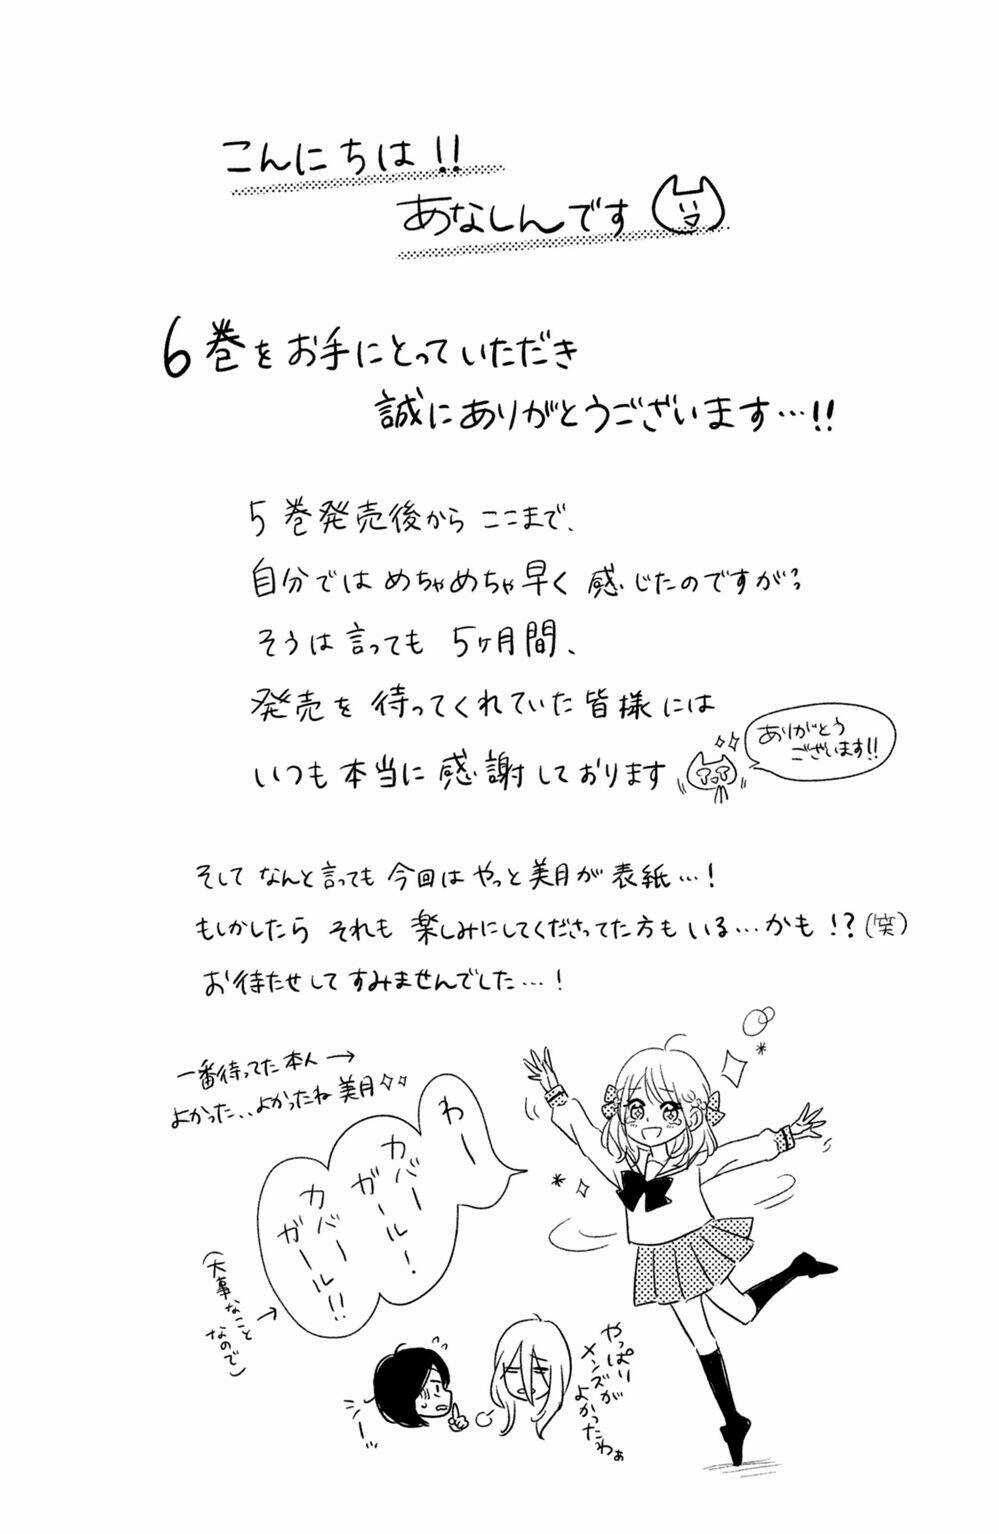 こんにちは!!
あなしんです
6巻をお手にとっていただき
誠にありがとうございます…!!
5巻発売後からここまで、
自分ではめちゃめちゃ早く感じたのですが
そうは言っても5ヶ月間、
発売を待ってくれていた皆様には
いつも本当に感謝しております
ありがとう
ございます!!
そしてなんと言っても今回はやっと美月が表紙…!
もしかしたらそれも楽しみにしてくださってた方もいる…かも!?(笑)
お待たせしてすみませんでした…!
一番待ってた本人→
よかった…よかったね美月
わー
カバー
ガール!
カバー
ガール!!
(大事なこと
なので)
シーッ
やっぱり
メンズが
よかったわぁ